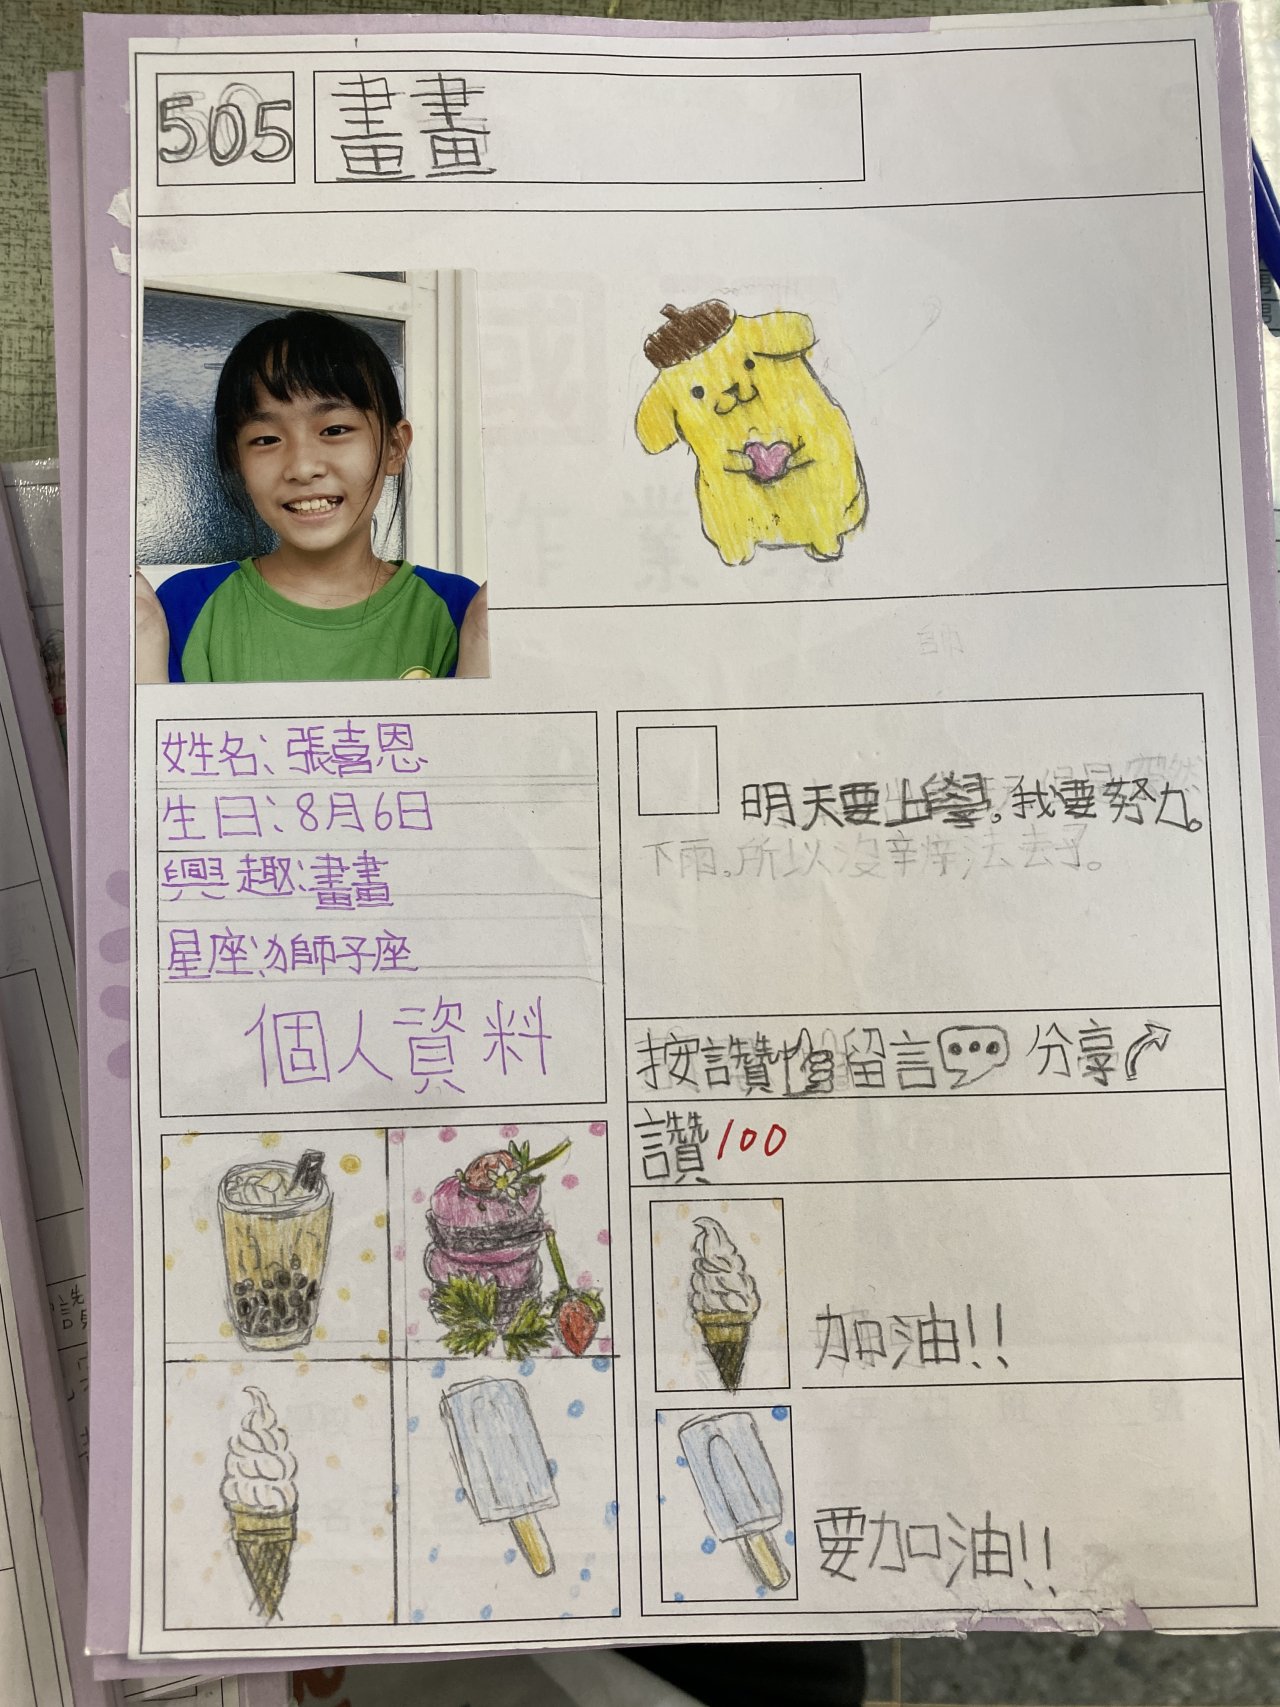 505
畫畫
姓名:張喜恩
生日:8月6日
興趣:畫畫
星座:獅子座
個人資料
明天要上學。我要努力。
下雨。所以沒辦法去了。
按讚 留言 分享
讚100
加油!!
要加油!!